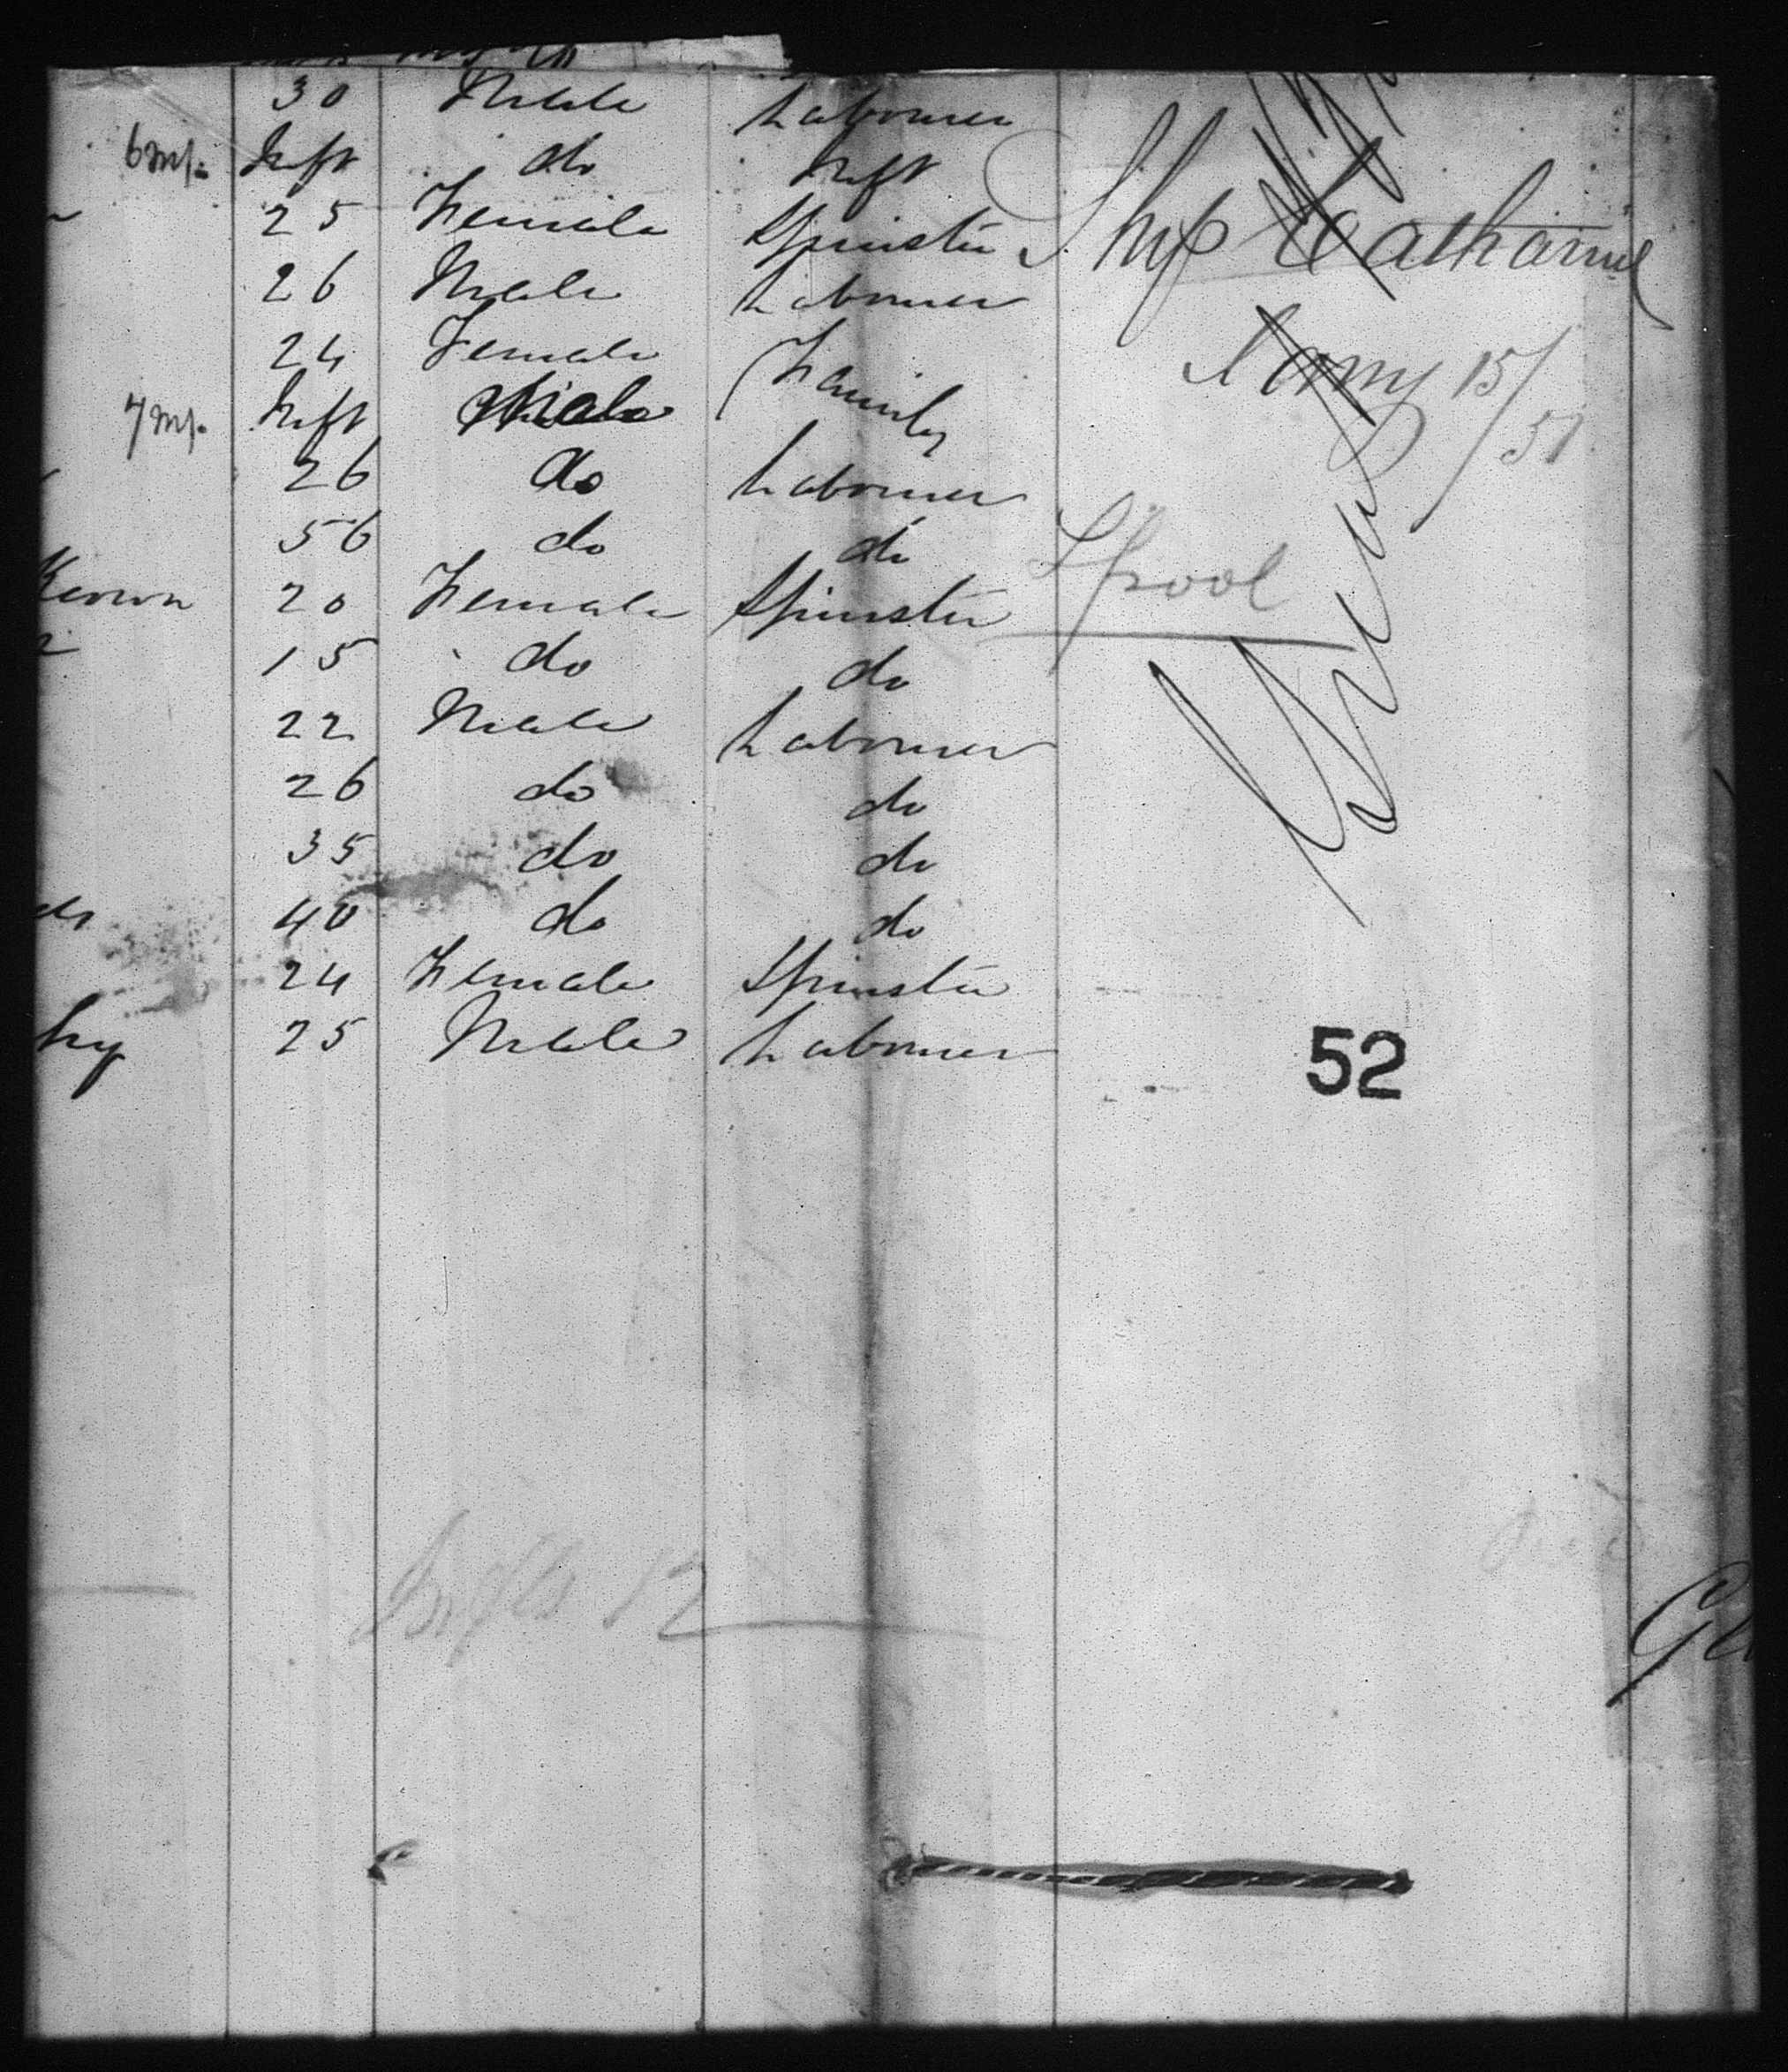 30 Male Labourer
6 ms. Inft do Inft
25 Female Spinster
26 Male Labourer
24 Female
7 ms. Inft Male Family
26 do Labourer
56 do do
Keown 20 Female Spinster
15 do do
22 Male Labourer
26 do do
35 do do
40 do do
24 Female Spinster
hy 25 Male Labourer
Ship Catharine
15/51
Lpool
52
12